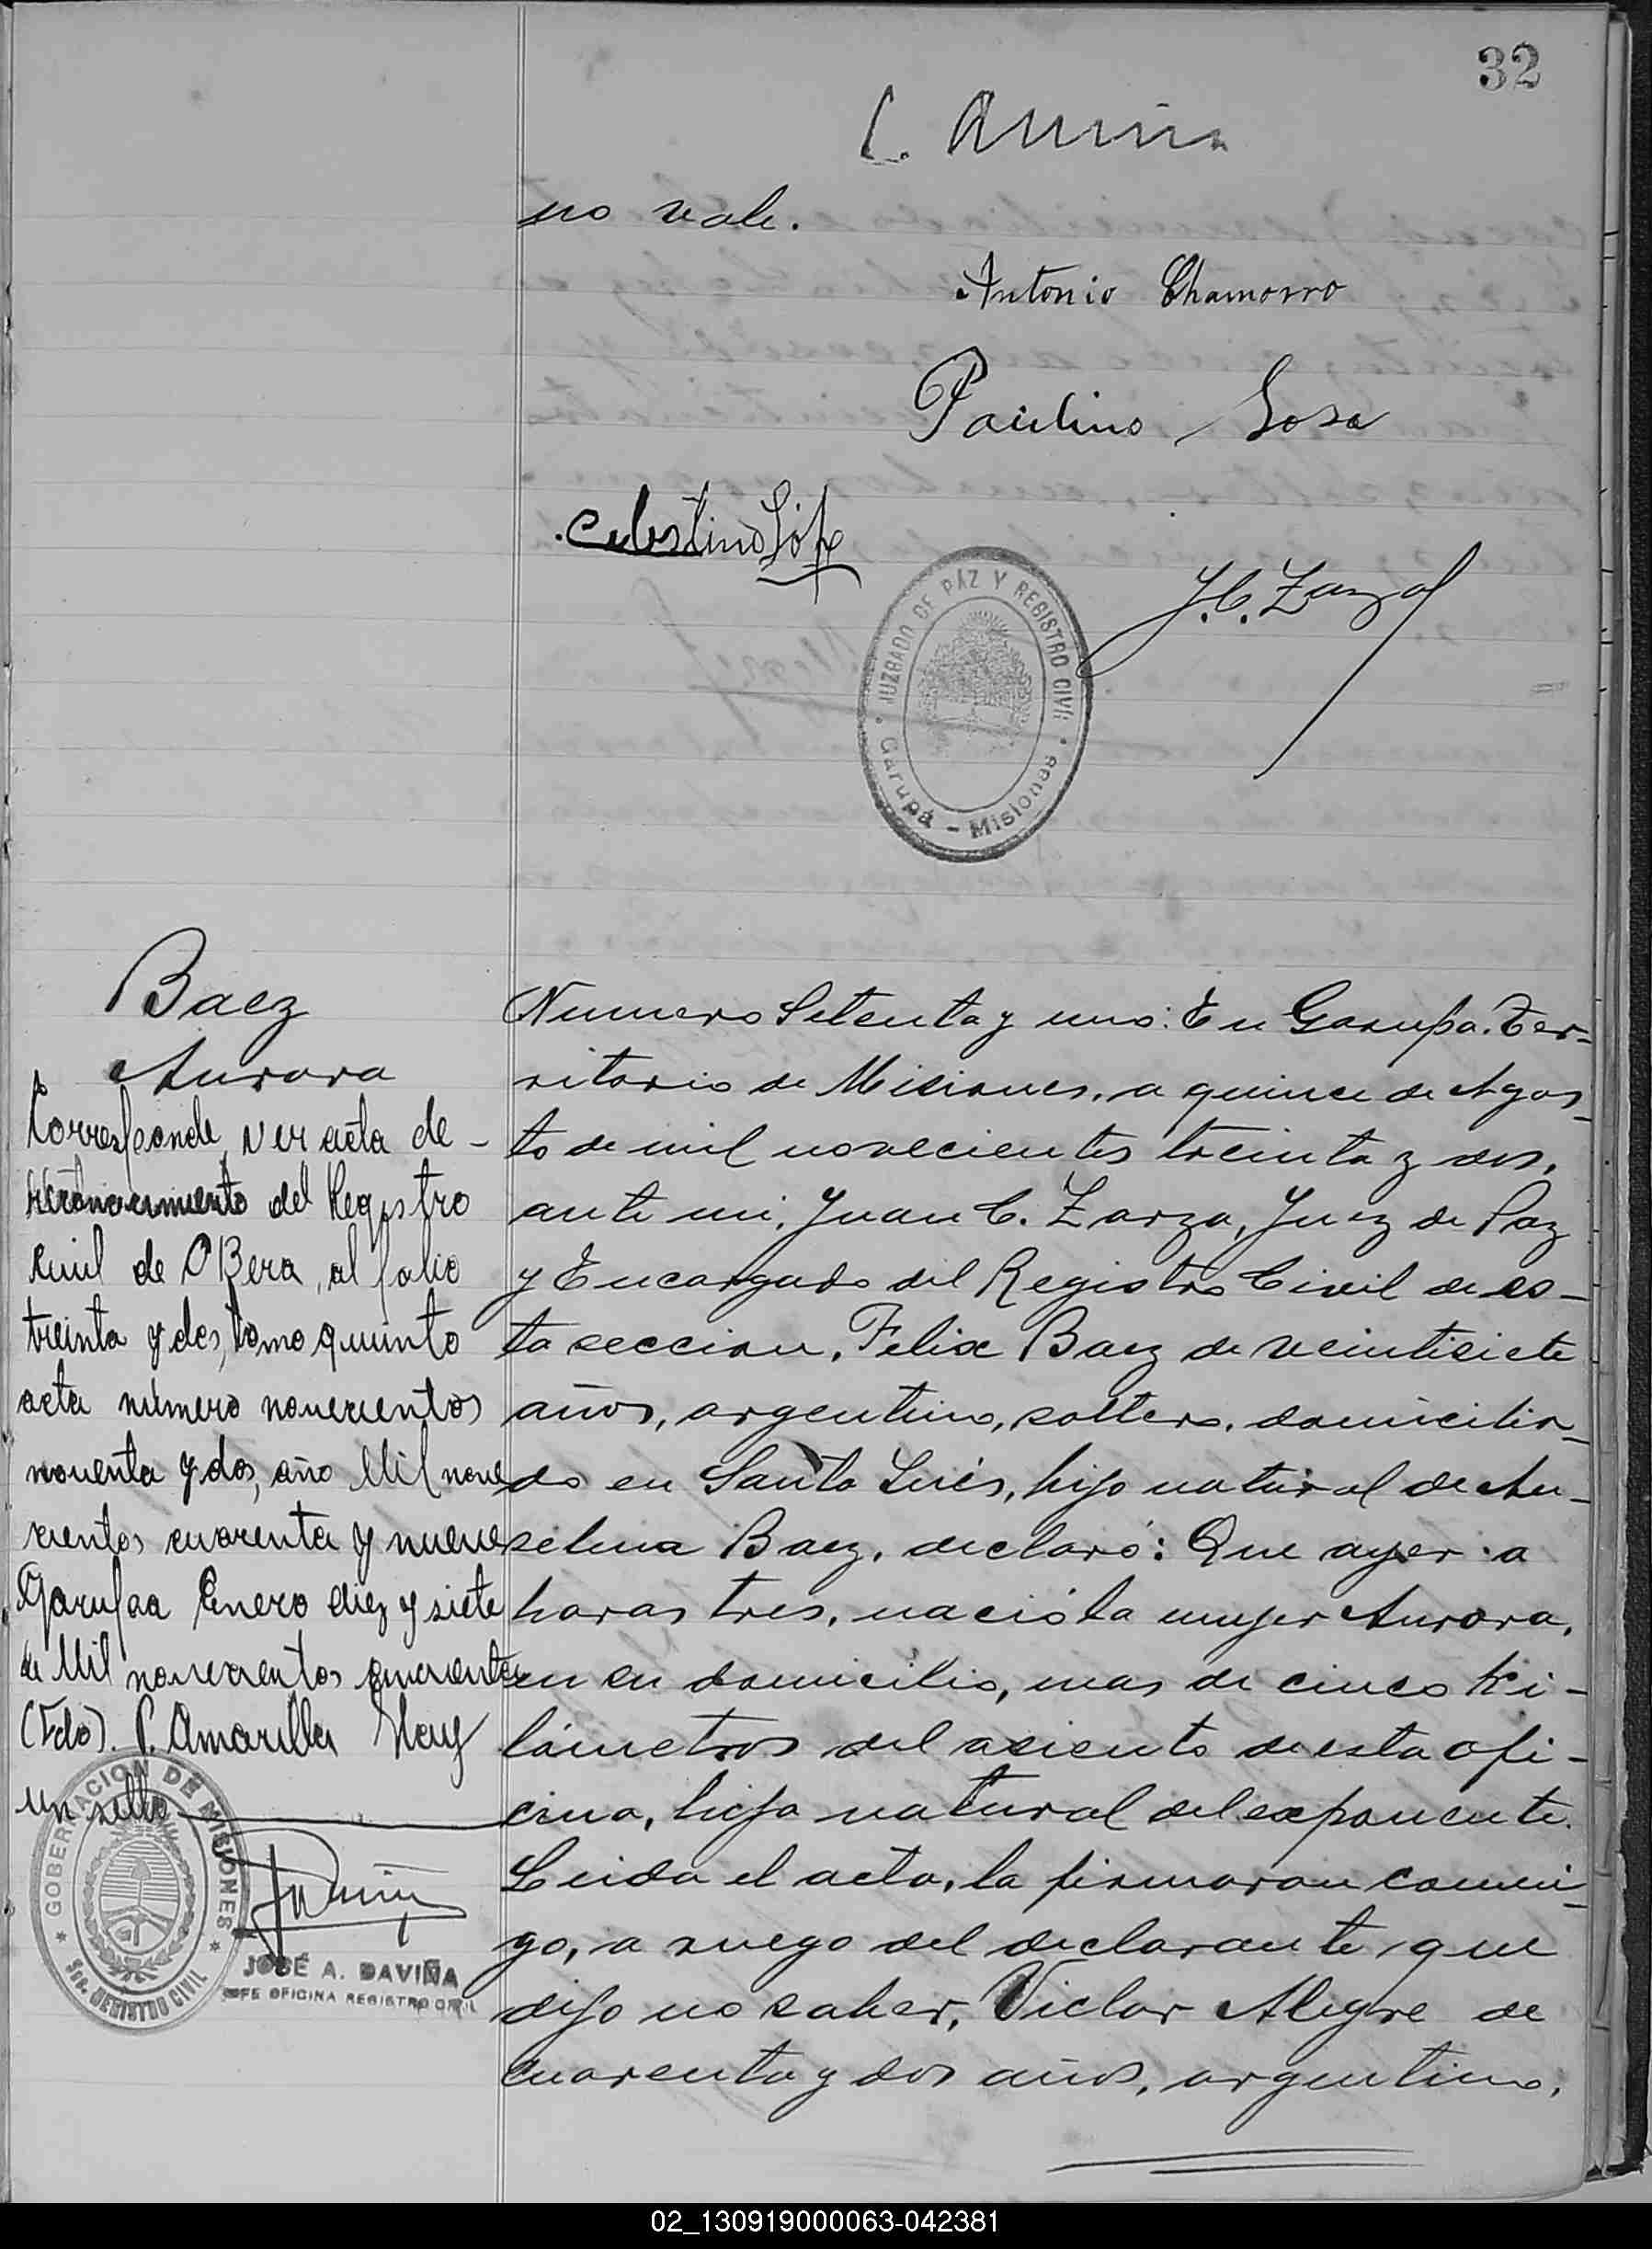 32
no vale.
Antonio Chamorro
Paulino Sosa
Celestino
J.C. Zarza
JUZGADO DE PAZ Y REGISTRO CIVIL
Garupá - Misiones
Baez
Aurora
Corresponde ver acta de-
reconocimiento del Registro
Civil de OBera, al folio
treinta y dos, tomo quinto
acta número novecientos
noventa y dos, año Mil nove
cientos cuarenta y nueve
Garupaa Enero diez y siete
de Mil novecientos cincuenta
(Fdo). P. Amarilla Hay
un sello
GOBERNACION DE MISIONES
REGISTRO CIVIL
JOSÉ A. DAVIÑA
JEFE OFICINA REGISTRO CIVIL
Numero Setenta y uno: En Garupa. Ter-
ritorio de Misiones, a quince de Agos-
to de mil novecientos treinta y dos,
ante mi, Juan C. Zarza, Juez de Paz
y Encargado del Registro Civil de es-
ta seccion, Felix Baez de veintisiete
años, argentino, soltero, domicilia-
do en Santa Inés, hijo natural de An-
selma Baez, declaró: Que ayer a
horas tres, nació la mujer Aurora,
en su domicilio, mas de cinco ki-
lómetros del asiento de esta ofi-
cina, hija natural del exponente.
Leida el acta, la firmaron conmi-
go, a ruego del declarante, que
dijo no saber, Victor Alegre de
cuarenta y dos años, argentino,
02_130919000063-042381